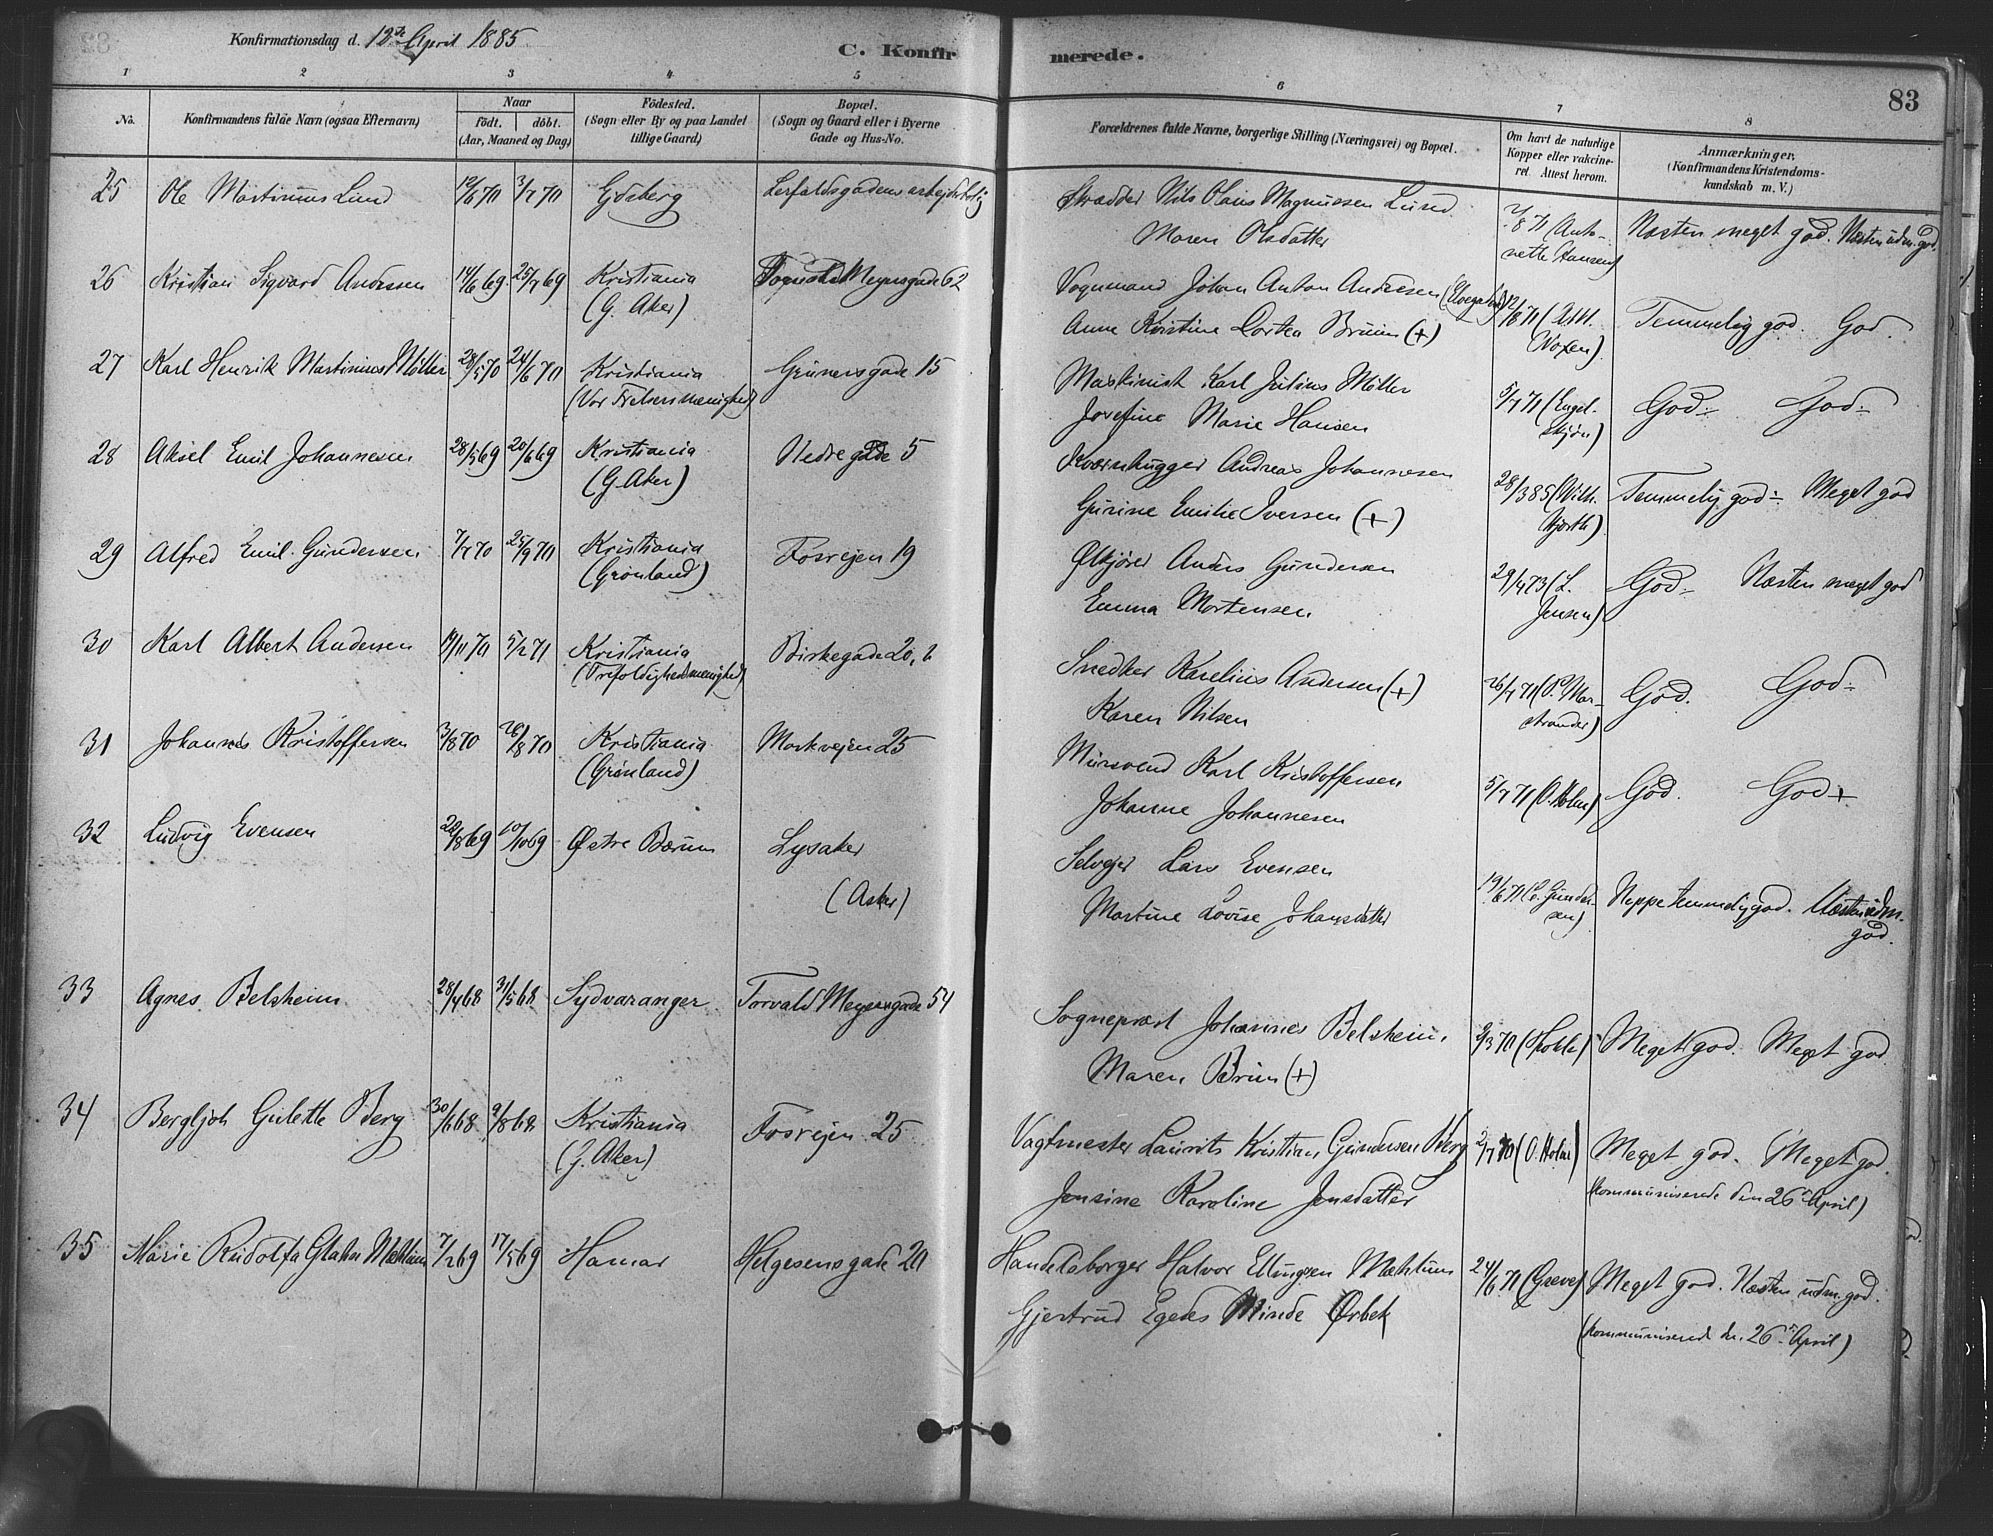 Konfirmationsdag d. 12te April 1885
C. Konfirmerede.
83
1 2 3 4 5 6 7 8
No.
Konfirmandens fulde Navn (ogsaa Efternavn)
Naar
født. døbt.
(Aar, Maaned og Dag)
Födested.
(Sogn eller By og paa Landet
tillige Gaard)
Bopæl.
(Sogn og Gaard eller i Byerne
Gade og Hus-No.
Forældrenes fulde Navne, borgerlige Stilling (Næringsvei) og Bopæl.
Om havt de naturlige
Kopper eller vakcine-
ret. Attest herom.
Anmærkninger.
(Konfirmandens Kristendoms-
kundskab m. V.)
25 Ole Martinius Lund 12/6 70 3/7 70 Lerfaldsgadens arbejderbolig Skrædder Nils Olaus Magnussen Lund 2/8 71 (Anto- Næsten meget god. Næsten udm. god.
Maren Olsdatter nette Hansen)
26 Kristian Sigvard Andersen 14/6 69 25/7 69 Kristiania Meyersgade 62 Vognmand Johan Anton Andresen 12/8 71 Temmelig god. God.
(G. Aker) Anne Kristine Dortea Bruun (+)
27 Karl Henrik Martinius Möller 28/5 70 24/6 70 Kristiania Grünersgade 15 Maskinist Karl Julius Möller 5/7 71 (Engel- God÷ God÷
(Vor Frelsers menighed) Josefine Marie Hansen skjön)
28 Aksel Emil Johannesen 28/5 69 20/6 69 Kristiania Nedregade 5 Kværnhugger Andreas Johannesen 28/3 85 (Wilh. Temmelig god÷ Meget god
(G. Aker) Gurine Emilie Iversen (+) Hjorth)
29 Alfred Emil Gundersen 7/7 70 25/9 70 Kristiania Fosvejen 19 Ølkjører Anders Gundersen 29/4 73 (L. God÷ Næsten meget god
(Grönland) Emma Mortensen Jensen)
30 Karl Albert Andersen 19/11 70 5/2 71 Kristiania Birkegade 20, b Snedker Karelius Andersen (+) 26/7 71 (P. Mar- God. God÷
(Trefoldighedsmenighed) Karen Nilsen strander)
31 Johannes Kristoffersen 3/8 70 26/8 70 Kristiania Markvejen 25 Mursvend Karl Kristoffersen 5/7 71 (O. Holm) God. God+
(Grönland) Johanne Johannesen
32 Ludvig Evensen 22/8 69 10/10 69 Østre Bærum Lysaker Selvejer Lars Evensen 19/6 71 (C. Gunder- Neppe temmelig god. Næsten udm.
(Asker) Martine Lovise Johansdatter sen) god.
33 Agnes Belsheim 28/4 68 31/5 68 Sydvaranger Torvald Meyersgade 54 Sogneprest Johannes Belsheim, 2/3 70 Meget god. Meget god
Maren Brun (+)
34 Bergljot Gulette Berg 30/6 68 9/8 68 Kristiania Fosvejen 25 Vagtmester Laurits Kristian Gundersen Berg 2/7 70 (O. Holm) Meget god. Meget god.
(G. Aker) Jensine Karoline Jensdatter (kommuniserede den 26de April)
35 Marie Rudolfa Glahn Mæhlum 7/2 69 17/5 69 Hamar Helgesensgade 20 Handelsborger Halvor Ellingsen Mæhlum 24/6 71 (Greve) Meget god. Næsten udm. god.
Gjertrud Egedes Minde Ørbek (kommuniserede den 26de April)